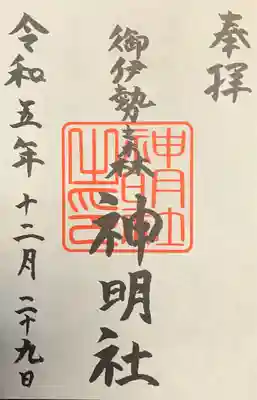 奉拝
御伊勢森
神明社
神明社之印
令和五年十二月二十九日